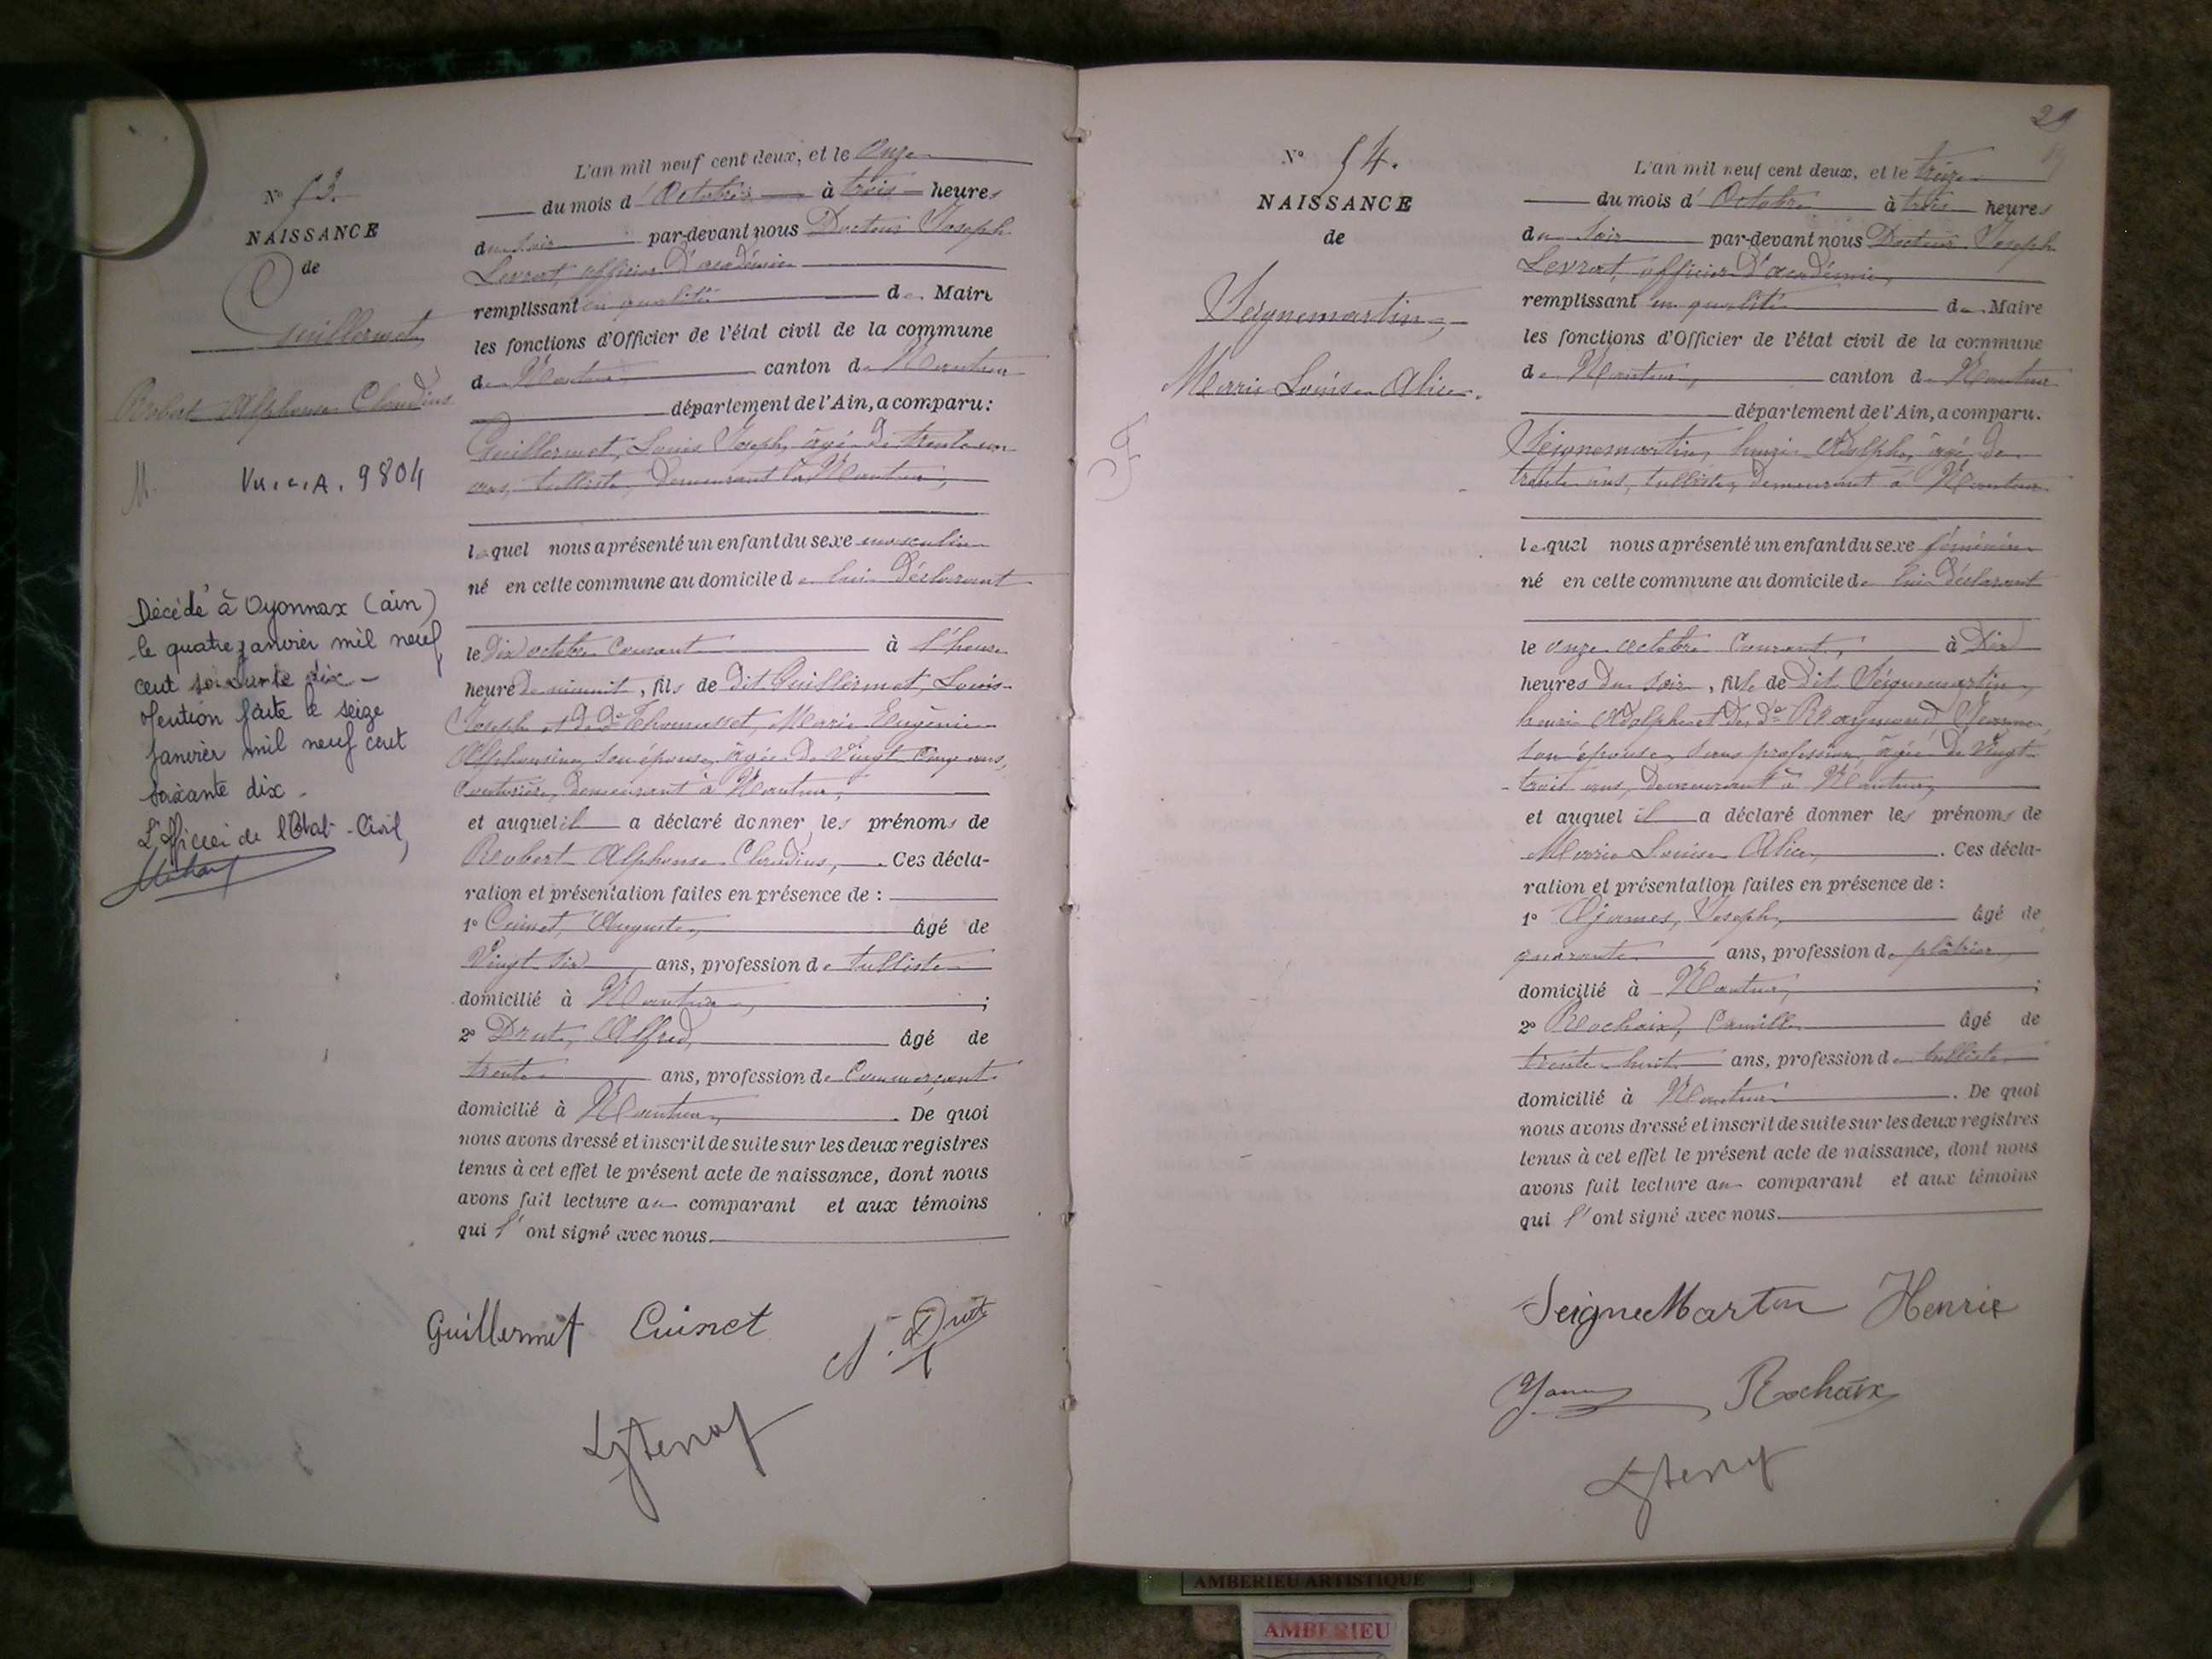 N° 53.
NAISSANCE
de
Guillermet,
Robert Alphonse Claudius
M.
Vu. e. A. 9804
Décédé à Oyonnax (ain)
le quatre janvier mil neuf
cent soixante dix -
Mention faite le seize
janvier mil neuf cent
soixante dix -
L'Officier de l'Etat-Civil,
L'an mil neuf cent deux, et le onze
du mois d'Octobre à trois heures
du soir par-devant nous Docteur Joseph
Levrat, officier d'académie
remplissant en qualité de Maire
les fonctions d'Officier de l'état civil de la commune
de Nantua canton de Nantua
département de l'Ain, a comparu :
Guillermet, Louis Joseph, âgé de trente un
ans, tulliste, demeurant à Nantua,
lequel nous a présenté un enfant du sexe masculin
né en cette commune au domicile de lui déclarant
le dix octobre courant à l'heure
heure de minuit, fils de dit Guillermet, Louis
Joseph et de de Thomasset, Marie Eugénie
Alphonsine, son épouse, âgée de vingt cinq ans,
couturière, demeurant à Nantua,
et auquel il a déclaré donner les prénoms de
Robert Alphonse Claudius, . Ces décla-
ration et présentation faites en présence de :
1° Cuinet, Auguste, âgé de
vingt six ans, profession de tulliste
domicilié à Nantua, ;
2° Drut, Alfred, âgé de
trente ans, profession de Commerçant
domicilié à Nantua, . De quoi
nous avons dressé et inscrit de suite sur les deux registres
tenus à cet effet le présent acte de naissance, dont nous
avons fait lecture au comparant et aux témoins
qui l'ont signé avec nous.
Guillermet Cuinet A. Drut
29
N° 54.
NAISSANCE
de
Seignemartin,
Marie Louise Alice.
F
L'an mil neuf cent deux, et le treize
du mois d'Octobre à trois heures
du soir par-devant nous Docteur Joseph
Levrat, officier d'académie,
remplissant en qualité de Maire
les fonctions d'Officier de l'état civil de la commune
de Nantua, canton de Nantua
département de l'Ain, a comparu.
Seignemartin, henri Adolphe, âgé de
trente ans, tulliste, demeurant à Nantua
lequel nous a présenté un enfant du sexe féminin
né en cette commune au domicile de lui déclarant
le onze octobre courant, à Dix
heures du soir, fille de dit Seignemartin,
henri Adolphe et de de Raymond, Jeanne
son épouse, sans profession, âgée de vingt
trois ans, demeurant à Nantua,
et auquel il a déclaré donner les prénoms de
Marie Louise Alice, . Ces décla-
ration et présentation faites en présence de :
1° Joseph, âgé de
quarante ans, profession de plâtrier,
domicilié à Nantua, ;
2° Rochaix, Camille, âgé de
trente huit ans, profession de tulliste
domicilié à Nantua . De quoi
nous avons dressé et inscrit de suite sur les deux registres
tenus à cet effet le présent acte de naissance, dont nous
avons fait lecture au comparant et aux témoins
qui l'ont signé avec nous.
SeigneMartin Henrie
Rochaix
AMBERIEU ARTISTIQUE
AMBERIEU